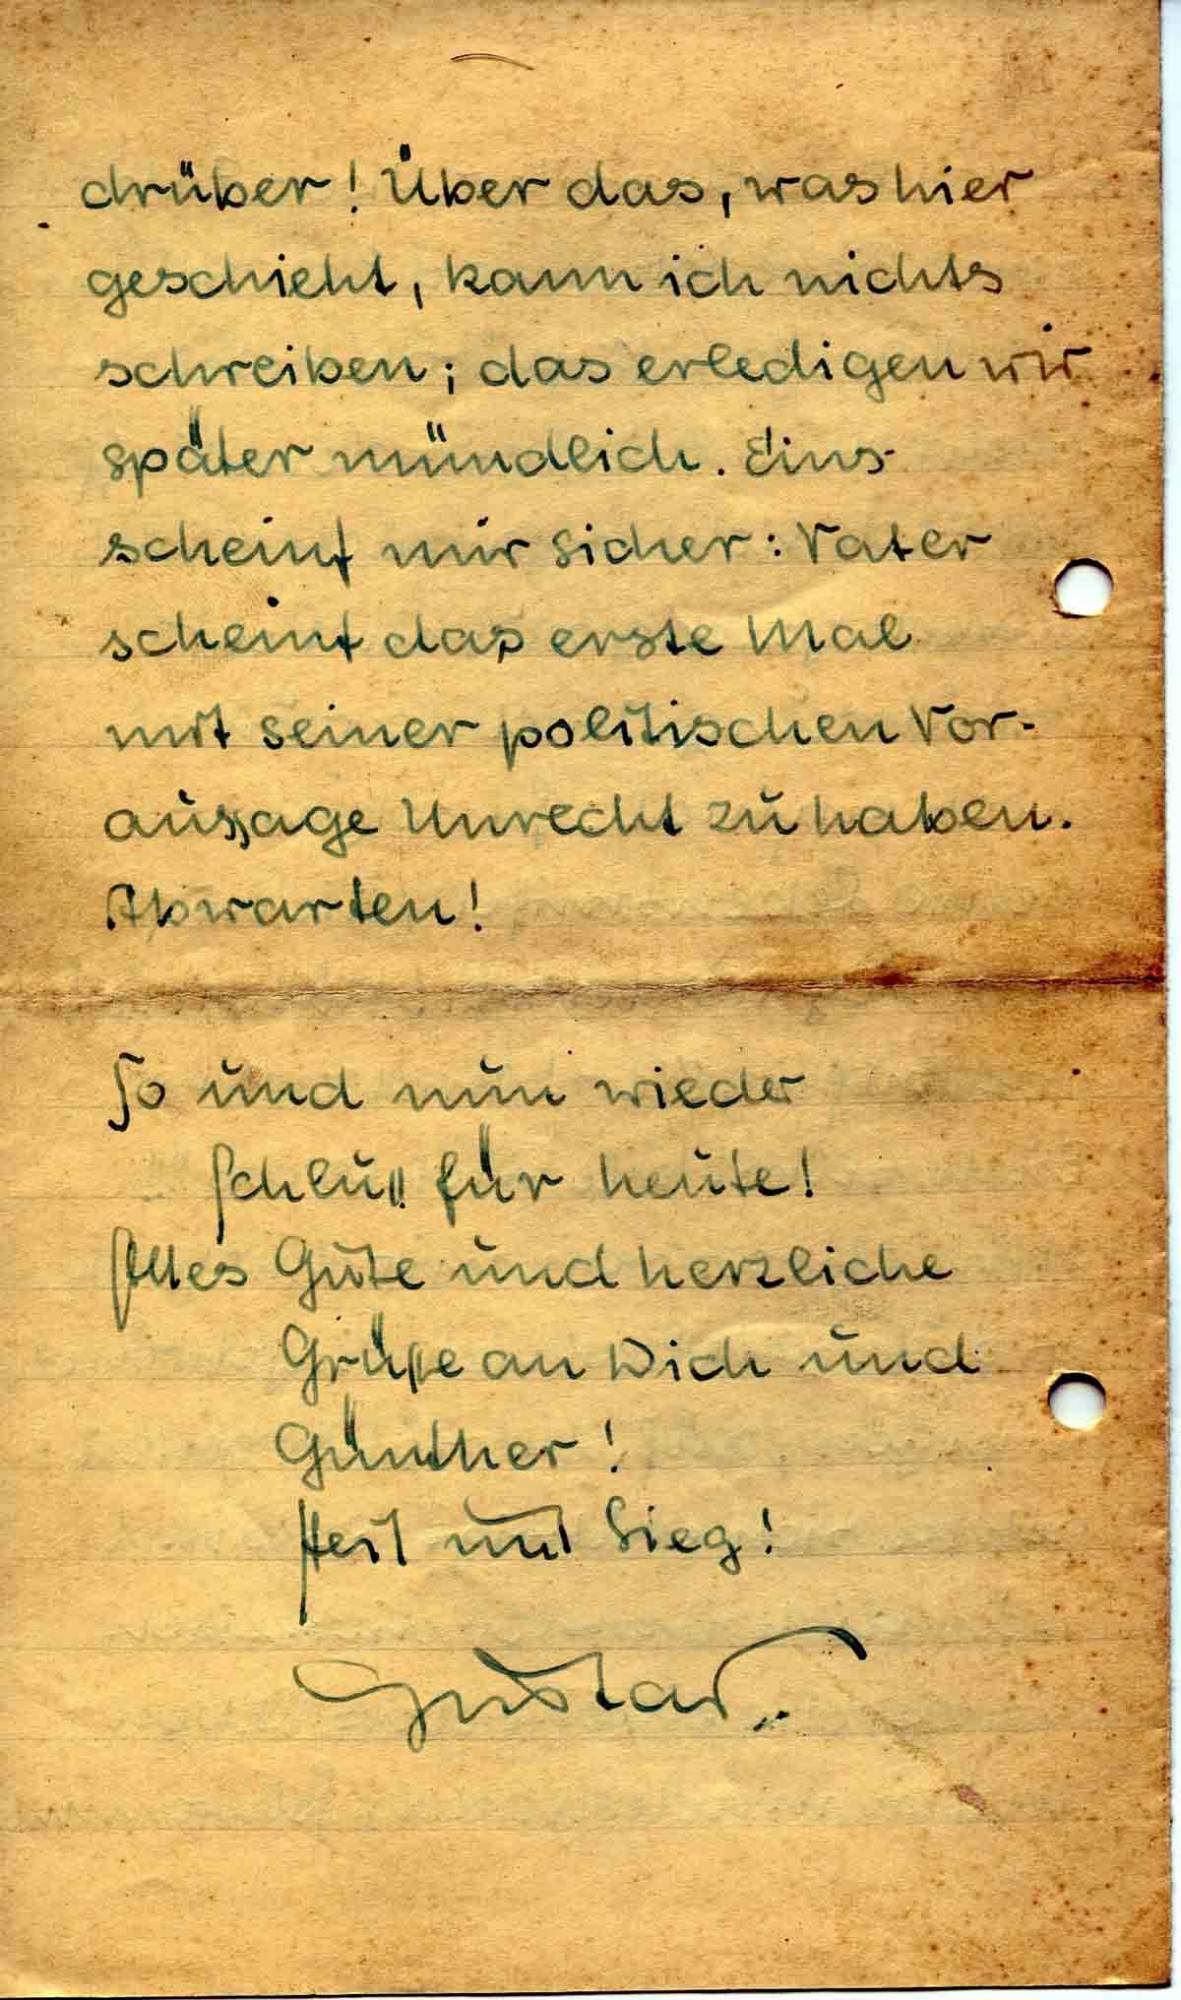 drüber! Über das, was hier
geschieht, kann ich nichts
schreiben; das erledigen wir
später mündlich. Eins
scheint mir sicher: Vater
scheint das erste Mal
mit seiner politischen Vor-
aussage Unrecht zu haben.
Abwarten!
So und nun wieder
Schluß für heute!
Alles Gute und herzliche
Grüße an Dich und
Günther!
Heil und Sieg!
Gustav.